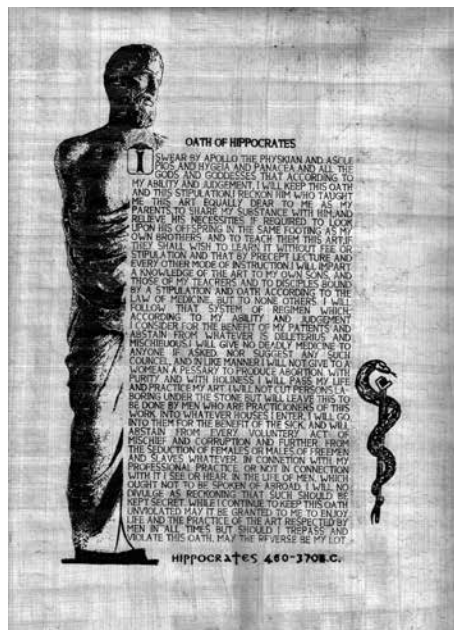 OATH OF HIPPOCRATES
I SWEAR BY APOLLO THE PHYSKIAN AND ASCLE
PIOS, AND HYGEIA AND PANACEA AND ALL THE
GODS AND GODDESSES THAT ACCORDING TO
MY ABILITY AND JUDGEMENT, I WILL KEEP THIS OATH
AND THIS STIPULATION,I RECKON HIM WHO TAUGHT
ME THIS ART EQUALLY DEAR TO ME AS MY
PARENTS,TO SHARE MY SUBSTANCE WITH HIM,AND
RELIEVE HIS NECESSITIES IF REQUIRED TO LOOK
UPON HIS OFFSPRING IN THE SAME FOOTING AS MY
OWN BROTHERS AND TO TEACH THEM THIS ART,IF
THEY SHALL WISH TO LEARN IT WITHOUT FEE OR
STIPULATION AND THAT BY PRECEPT LECTURE AND
EVERY OTHER MODE OF INSTRUCTION,I WILL IMPART
A KNOWLEDGE OF THE ART TO MY OWN SONS, AND
THOSE OF MY TEACRERS AND TO DISCIPLES BOUND
BY A STIPULATION AND OATH ACCORDING TO THE
LAW OF MEDICINE, BUT TO NONE OTHERS. I WILL
FOLLOW THAT SYSTEM OF REGIMEN WHICH,
ACCORDING TO MY ABILITY AND JUDGEMENT
I CONSIDER FOR THE BENEFIT OF MY PATIENTS AND
ABSTAIN FROM WHATEVER IS DELETERIUS AND
MISCHIEUOUS.I WILL GIVE NO DEADLY MEDICINE TO
ANYONE IF ASKED NOR SUGGEST ANY SUCH
COUNCEL, AND IN LIKE MANNER I WILL NOT GIVE TO A
WOMEAN A PESSARY TO PRODUCE ABORTION. WITH
PURITY AND WITH HOLINESS I WILL PASS MY LIFE
AND PRACTICE MY ART I WILL NOT CUT PERSONS LA-
BORING UNDER THE STONE BUT WILL LEAVE THIS TO
BE DONE BY MEN WHO ARE PRACTICIONERS OF THIS
WORK, INTO WHATEVER HOUSES I ENTER, I WILL GO
INTO THEM FOR THE BENEFIT OF THE SICK, AND WILL
ABSTAIN FROM EVERY VOLUNTERY ACT OF
MISCHIEF AND CORRUPTION AND FURTHER, FROM
THE SEDUCTION OF FEMALES OR MALES, OF FREEMEN
AND SLAVES WHATEVER, IN CONNETION WITH MY
PROFESSIONAL PRACTICE, OR NOT IN CONNECTION
WITH IT I SEE OR HEAR, IN THE LIFE OF MEN, WHICH
OUGHT NOT TO BE SPOKEN OF ABROAD, I WILL NO
DIVULGE AS RECKONING THAT SUCH SHOULD BE
KEPT SECRET. WHILE I CONTINUE TO KEEP THIS OATH
UNVIOLATED MAY IT BE GRANTED TO ME TO ENJOY
LIFE AND THE PRACTICE OF THE ART RESPECTED BY
MEN IN ALL TIMES BUT SHOULD I TREPASS AND
VIOLATE THIS OATH, MAY THE REVERSE BE MY LOT
HIPPOCRATES 460-370B.C.